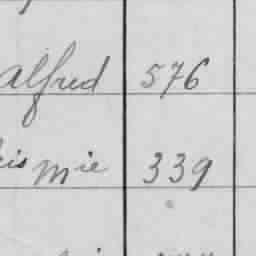 Alfred 576
is Mie 339